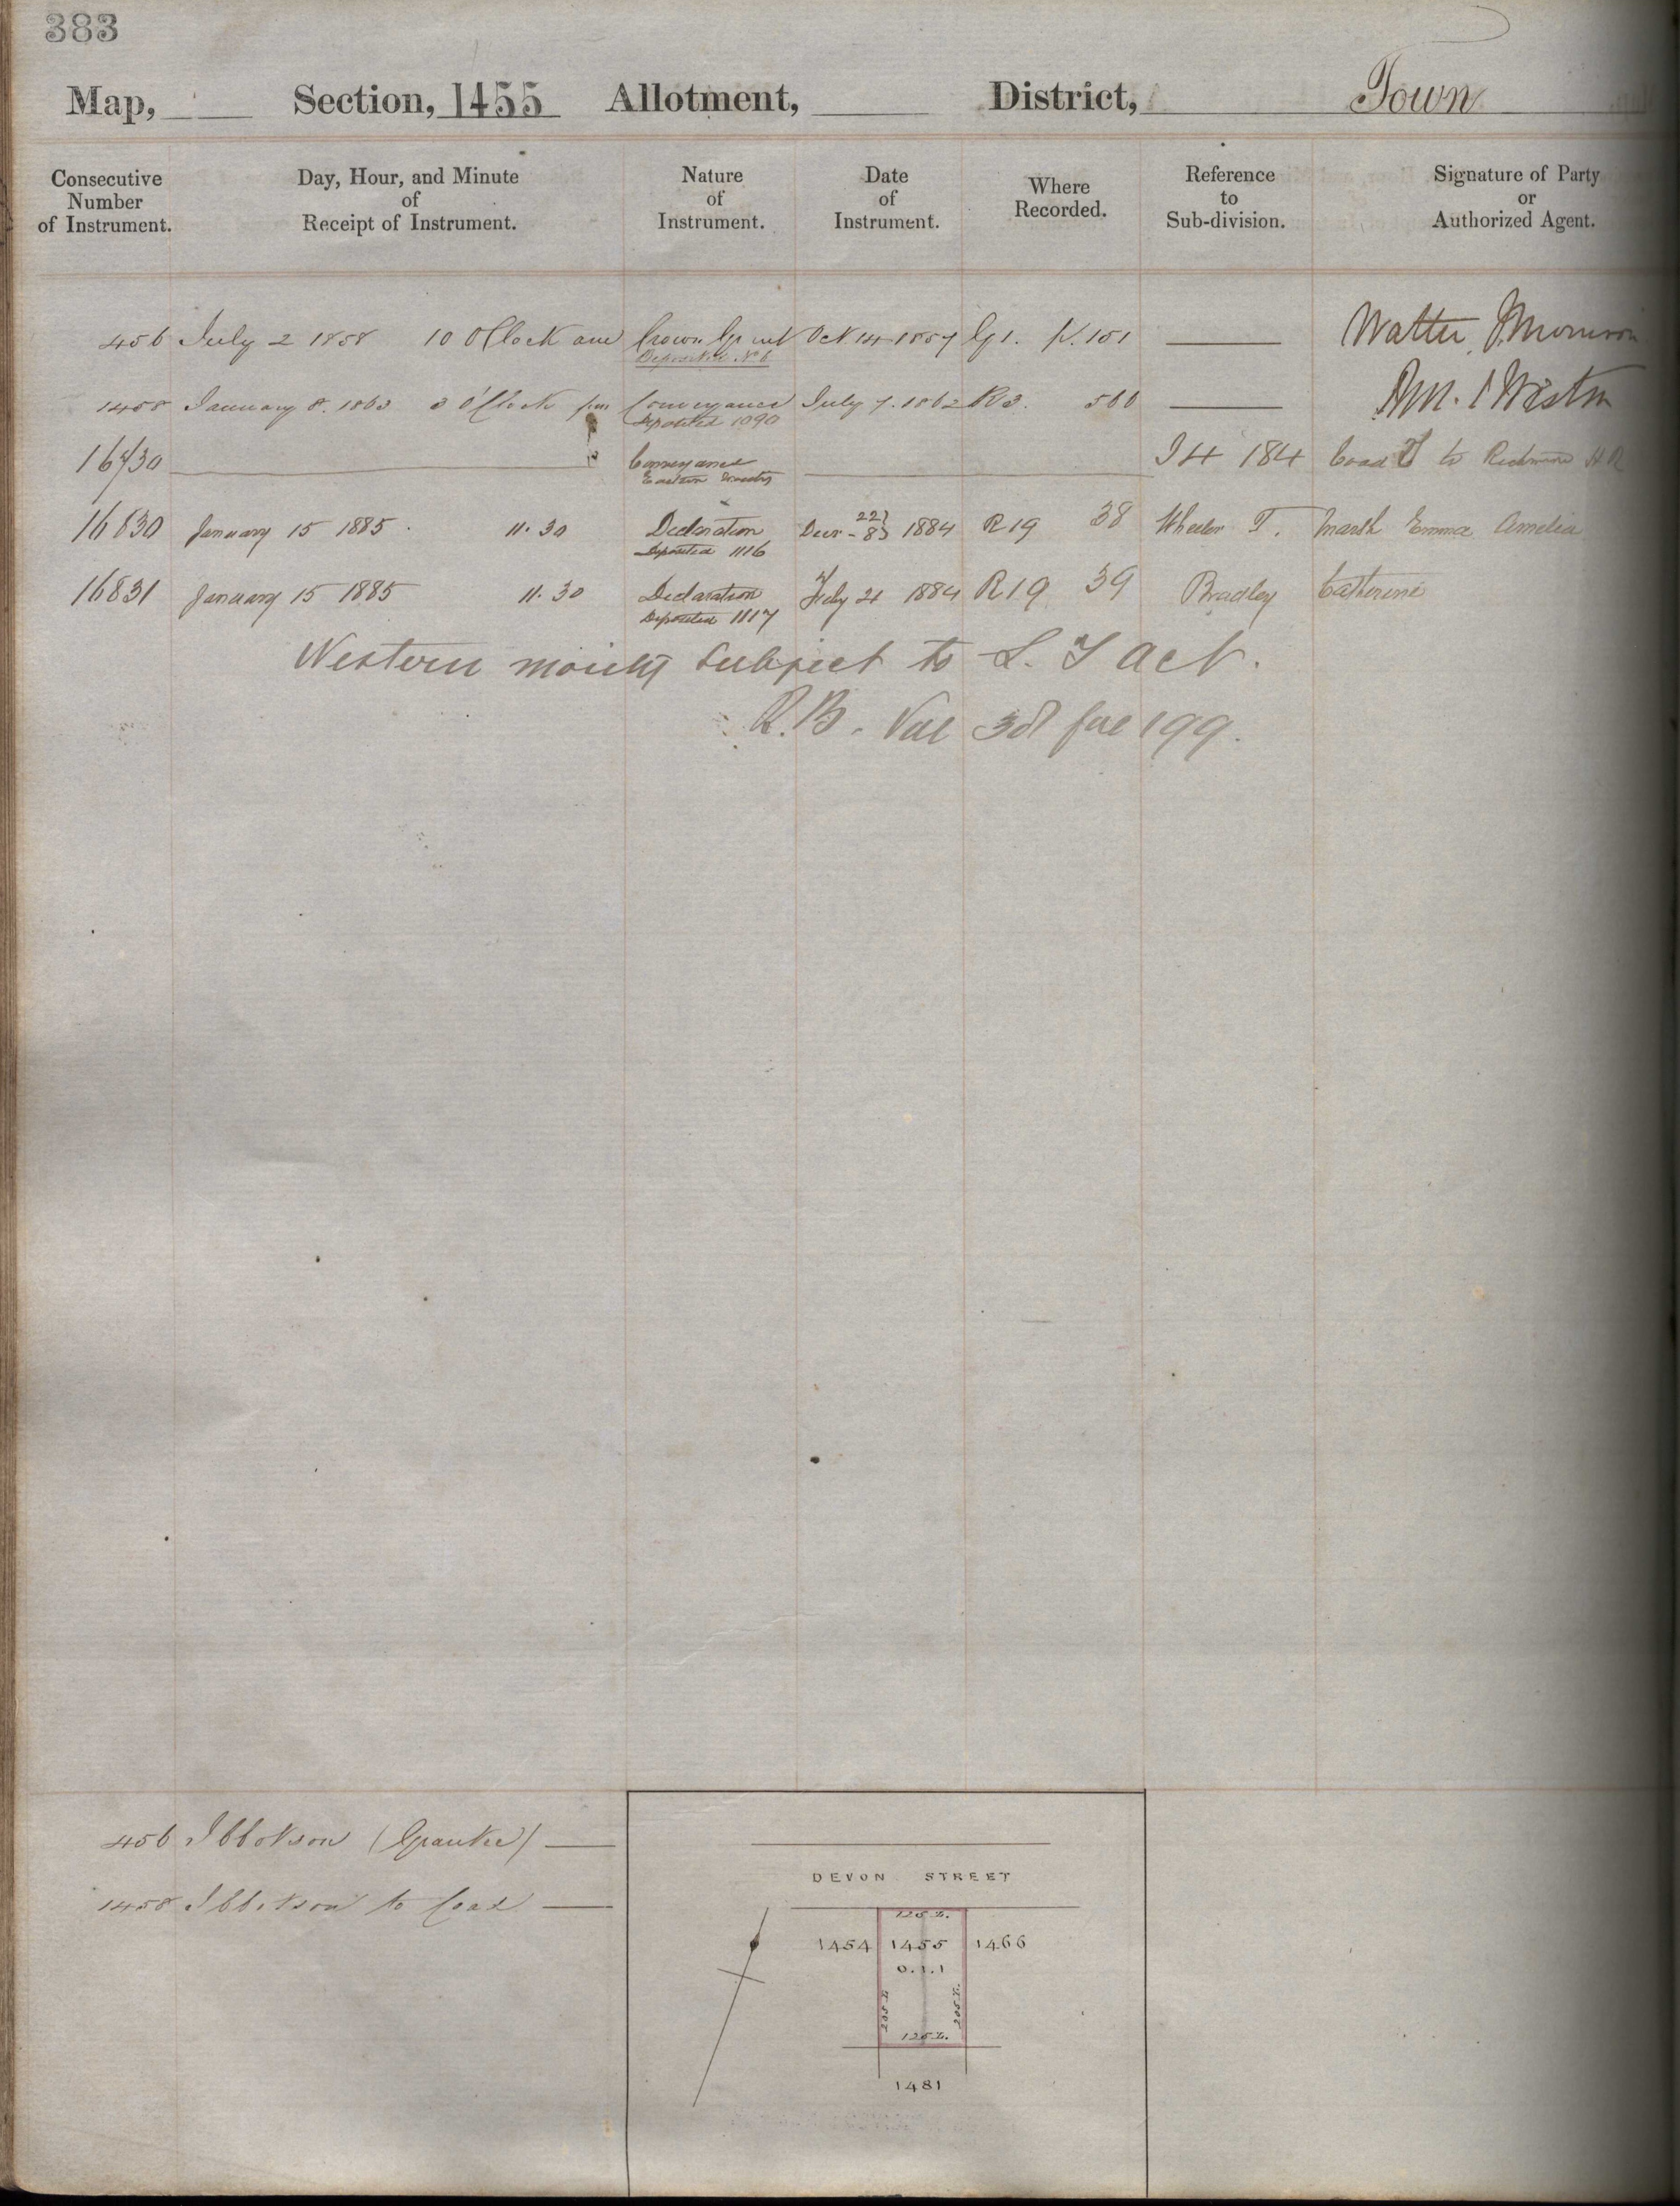 383
Map, Section, 1455 Allotment, District, Town
Consecutive Number of Instrument. Day, Hour, and Minute of Receipt of Instrument. Nature of Instrument. Date of Instrument. Where Recorded. Reference to Sub-division. Signature of Party or Authorized Agent.
456 July 2 1858 10 O'Clock am Crown Grant Oct 14 1857 G1. p. 151 Walter Morrison
Deposited No 6
1458 January 8. 1863 3 O'Clock pm Conveyance July 7. 1862 R3. 560
Deposited 1090
16430 Conveyance I4 184 Coad T to Redmore H R
Eastern moiety
16830 January 15 1885. 11.30 Declaration Decr 22 8 1884 R19 38 Wheeler T. Marsh Emma Amelia
Deposited 1116
16831 January 15 1885 11.30 Declaration July 21 1884 R19 39 Bradley Catherine
Deposited 1117
Western moiety Subject to L. T Act.
R.B. Vol 38 fol 199.
456 Ibbotson (Grantee)
1458 Ibbotson to Coad
DEVON STREET
125 L.
1454 1455 1466
0.1.1
205 L. 205 L.
125 L.
1481